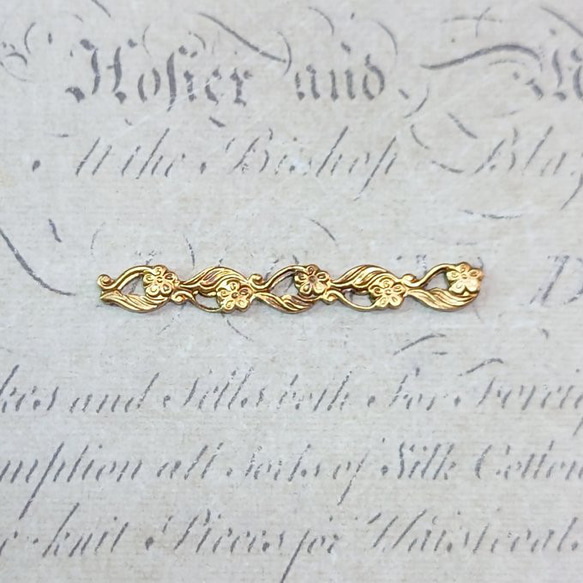 Hosier and M
At the Bishop Bla
kes and Sells both For Forei
mption all Sorts of Silk Cotton
e-knit Pieces for Waistcoat